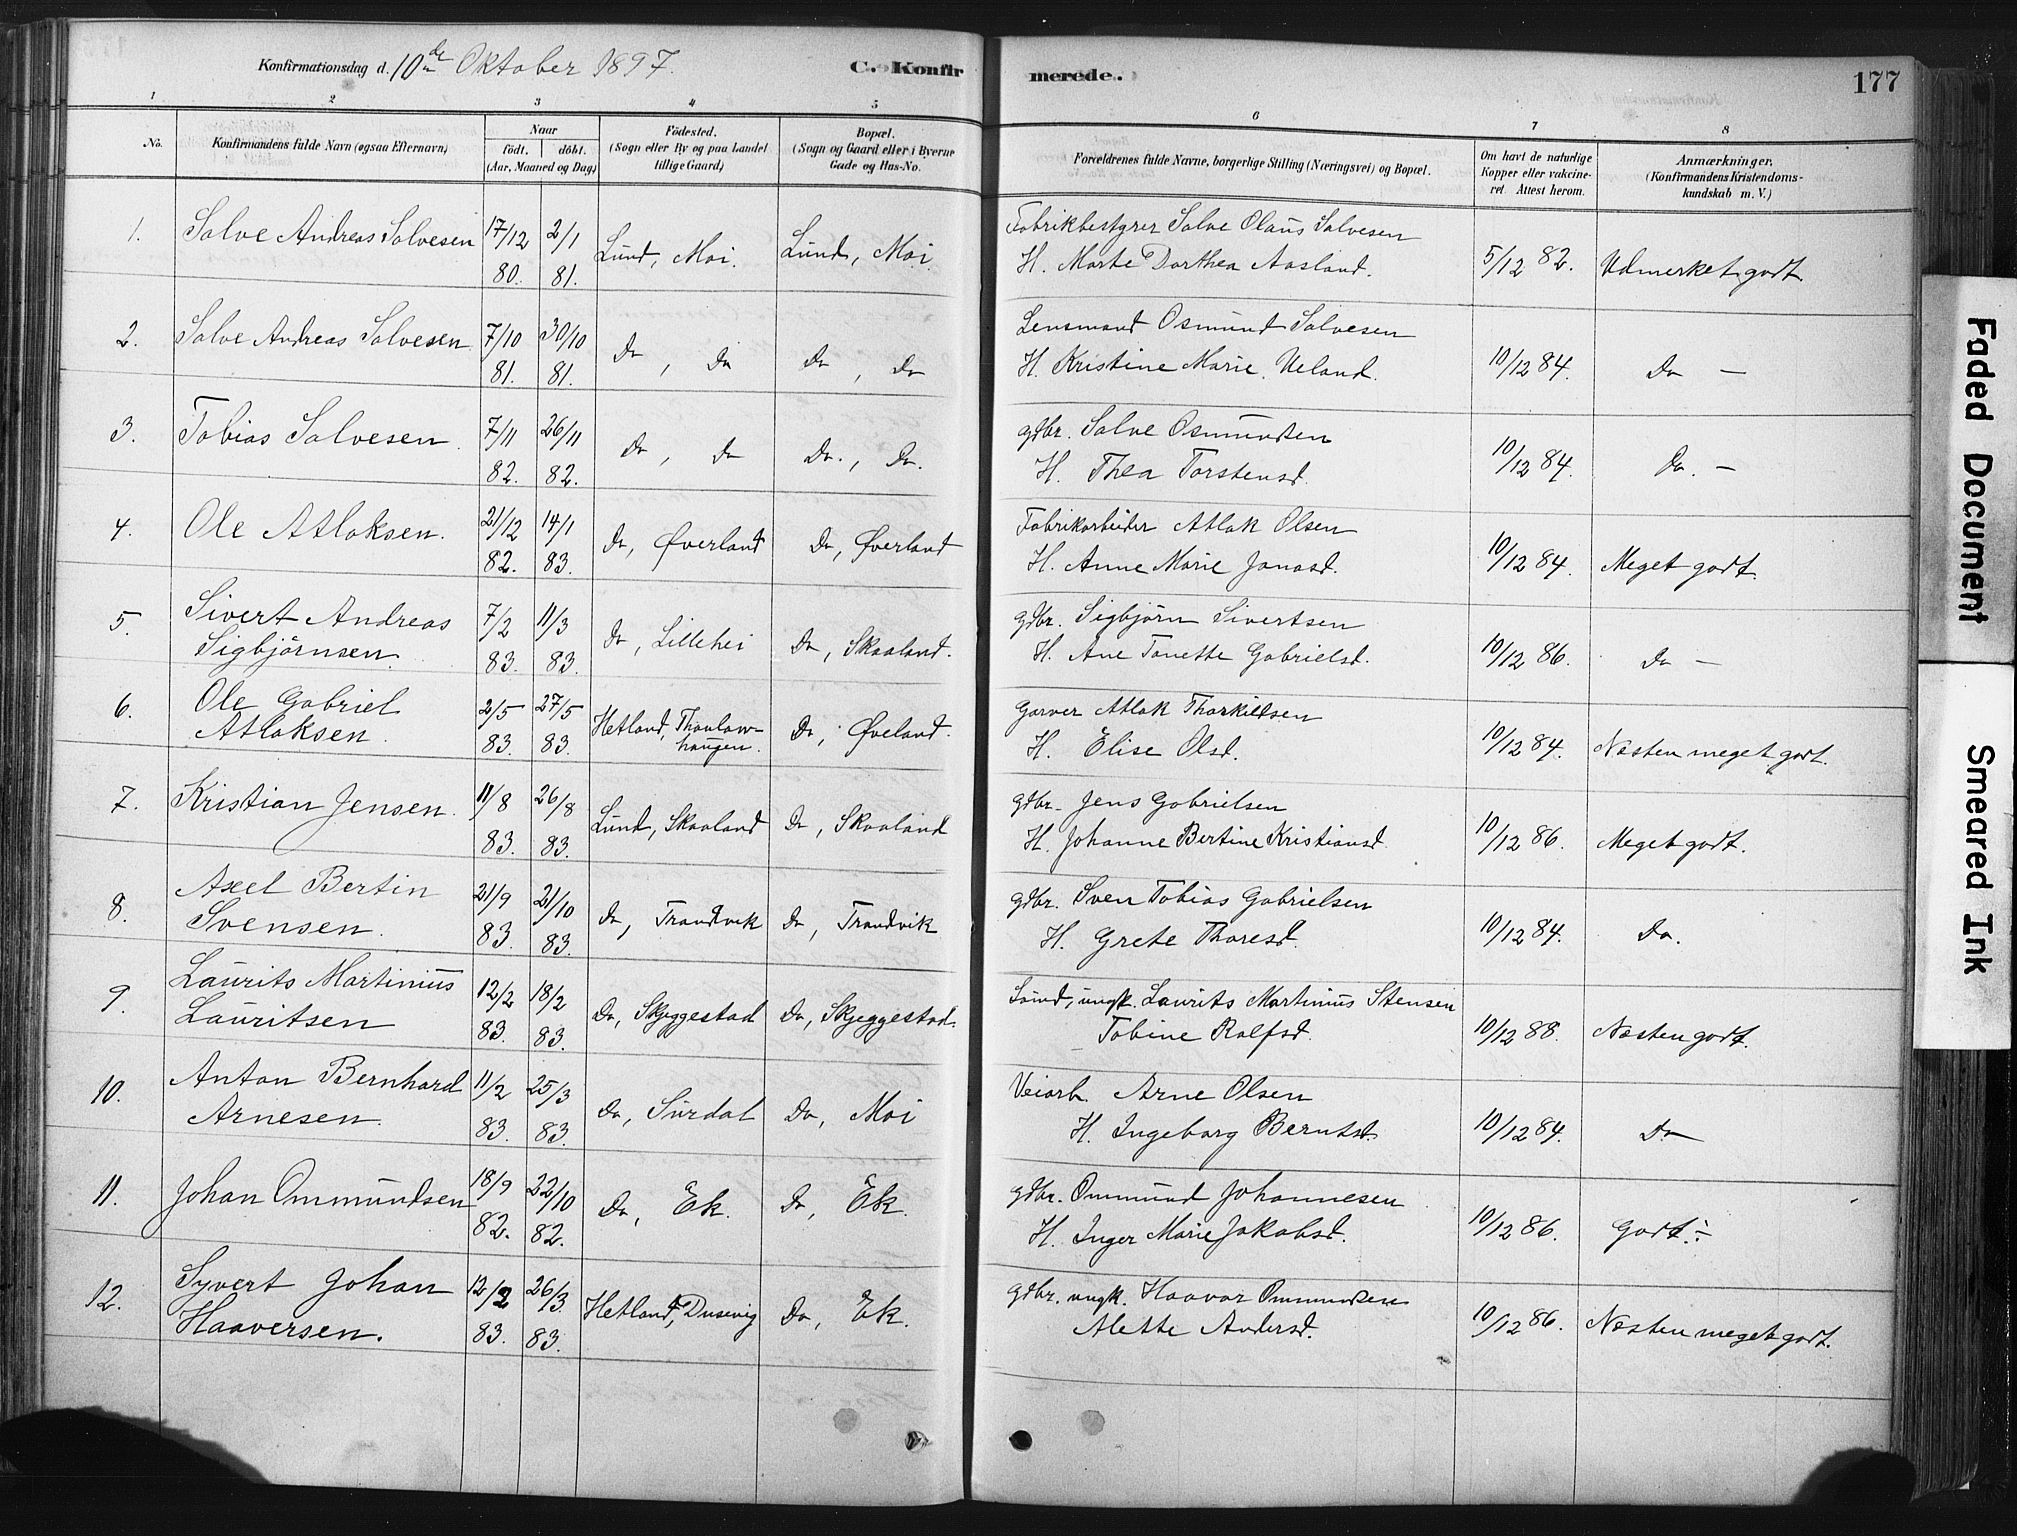 Konfirmationsdag d. 10de Oktober 1897.
C. Konfirmerede.
177
1 2 3 4 5 6 7 8
No.
Konfirmandens fulde Navn (ogsaa Efternavn)
Naar
födt. döbt.
(Aar, Maaned og Dag)
Födested.
(Sogn eller By og paa Landet
tillige Gaard)
Bopæl.
(Sogn og Gaard eller i Byerne
Gade og Hus-No.
Forældrenes fulde Navne, borgerlige Stilling (Næringsvei) og Bopæl.
Om havt de naturlige
Kopper eller vakcine-
ret. Attest herom.
Anmærkninger.
(Konfirmandens Kristendoms-
kundskab m. V.)
1. Salve Andreas Salvesen 17/12 80. 2/1 81. Lund, Moi. Lund, Moi.
Fabrikbestyrer Salve Olaus Salvesen
H. Marte Dorthea Aasland. 5/12 82. Udmerket godt
2. Salve Andreas Salvesen 7/10 81. 30/10 81. Do, Do Do, Do
Lensmand Osmund Salvesen
H. Kristine Marie Ueland. 10/12 84. Do —
3. Tobias Salvesen. 7/11 82. 26/11 82. Do, Do Do., Do.
gdbr. Salve Osmundsen
H. Thea Torstensd. 10/12 84. Do. —
4. Ole Atlaksen. 21/12 82. 14/1 83. Do, Øverland Do, Øverland
Fabrikarbeider Atlak Olsen
H. Anne Marie Jonasd. 10/12 84. Meget godt.
5. Sivert Andreas
Sigbjörnsen. 7/2 83. 11/3 83. Do, Lillehei Do, Skaaland.
gdbr. Sigbjörn Sivertsen
H. Ane Tonette Gabrielsd. 10/12 86. Do —
6. Ole Gabriel
Atlaksen. 2/5 83. 27/5 83. Hetland, Thaulow-
haugen. Do, Øveland.
Garver Atlak Tharkildsen
H. Elise Olsd. 10/12 84. Næsten meget godt.
7. Kristian Jensen. 11/8 83. 26/8 83. Lund, Skaaland Do, Skaaland
gdbr. Jens Gabrielsen
H. Johanne Bertine Kristiansd. 10/12 86. Meget godt.
8. Axel Bertin
Svensen. 21/9 83. 21/10 83. Do, Trandvik Do, Trandvik
gdbr. Sven Tobias Gabrielsen
H. Grete Tharesd. 10/12 84. Do.
9. Laurits Martinius
Lauritsen 12/2 83. 18/2 83. Do, Skjeggestad Do, Skjeggestad.
ungk. Laurits Martinius Stensen
Tobine Rolfsd. 10/12 88. Næsten godt.
10. Anton Bernhard
Arnesen. 11/2 83. 25/3 83. Do, Surdal Do, Moi
Veiarb. Arne Olsen
H. Ingeborg Berntsd. 10/12 84. Do
11. Johan Ommundsen 18/9 82. 22/10 82. Do, Ek. Do, Ek.
gdbr. Ommund Johannesen
H. Inger Marie Jakobsd. 10/12 86. Godt ÷
12. Syvert Johan
Haaversen. 12/2 83. 26/3 83. Hetland, Dusevig Do, Ek.
gdbr. ungk. Haavar Ommundsen
Alette Andersd. 10/12 86. Næsten meget godt.
Faded Document
Smeared Ink